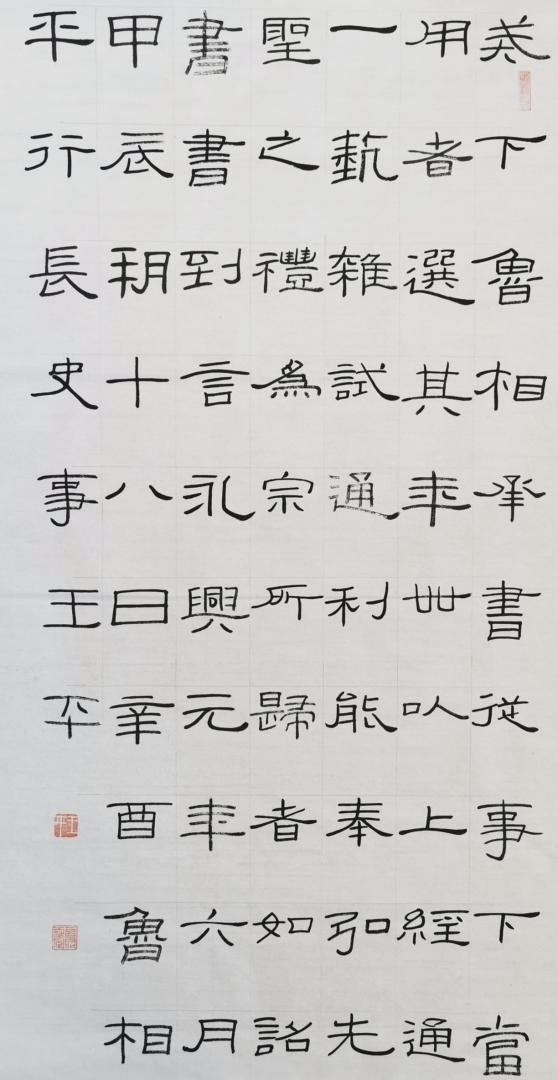 戒下魯相承書從事下當
用者選其年卌以上經通
一蓺雜試通利能奉弘先
聖之禮為宗所歸者如詔
書書到言永興元年六月
甲辰朔十八日辛酉魯相
平行長史事王平